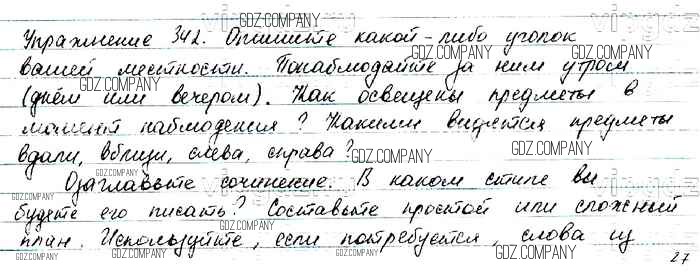 Упражнение 342. Опишите какой-либо уголок
вашей местности. Понаблюдайте за ним утром
(днём или вечером). Как освещены предметы в
момент наблюдения? Какими видятся предметы
вдали, вблизи, слева, справа?
Озаглавьте сочинение. В каком стиле вы
будете его писать? Составьте простой или сложный
план. Используйте, если потребуется, слова из
27
GDZ.COMPANY
GDZ.COMPANY
GDZ.COMPANY
GDZ.COMPANY
GDZ.COMPANY
GDZ.COMPANY
GDZ.COMPANY
GDZ.COMPANY
GDZ.COMPANY
GDZ.COMPANY
GDZ.COMPANY
GDZ.COMPANY
GDZ.COMPANY
GDZ.COMPANY